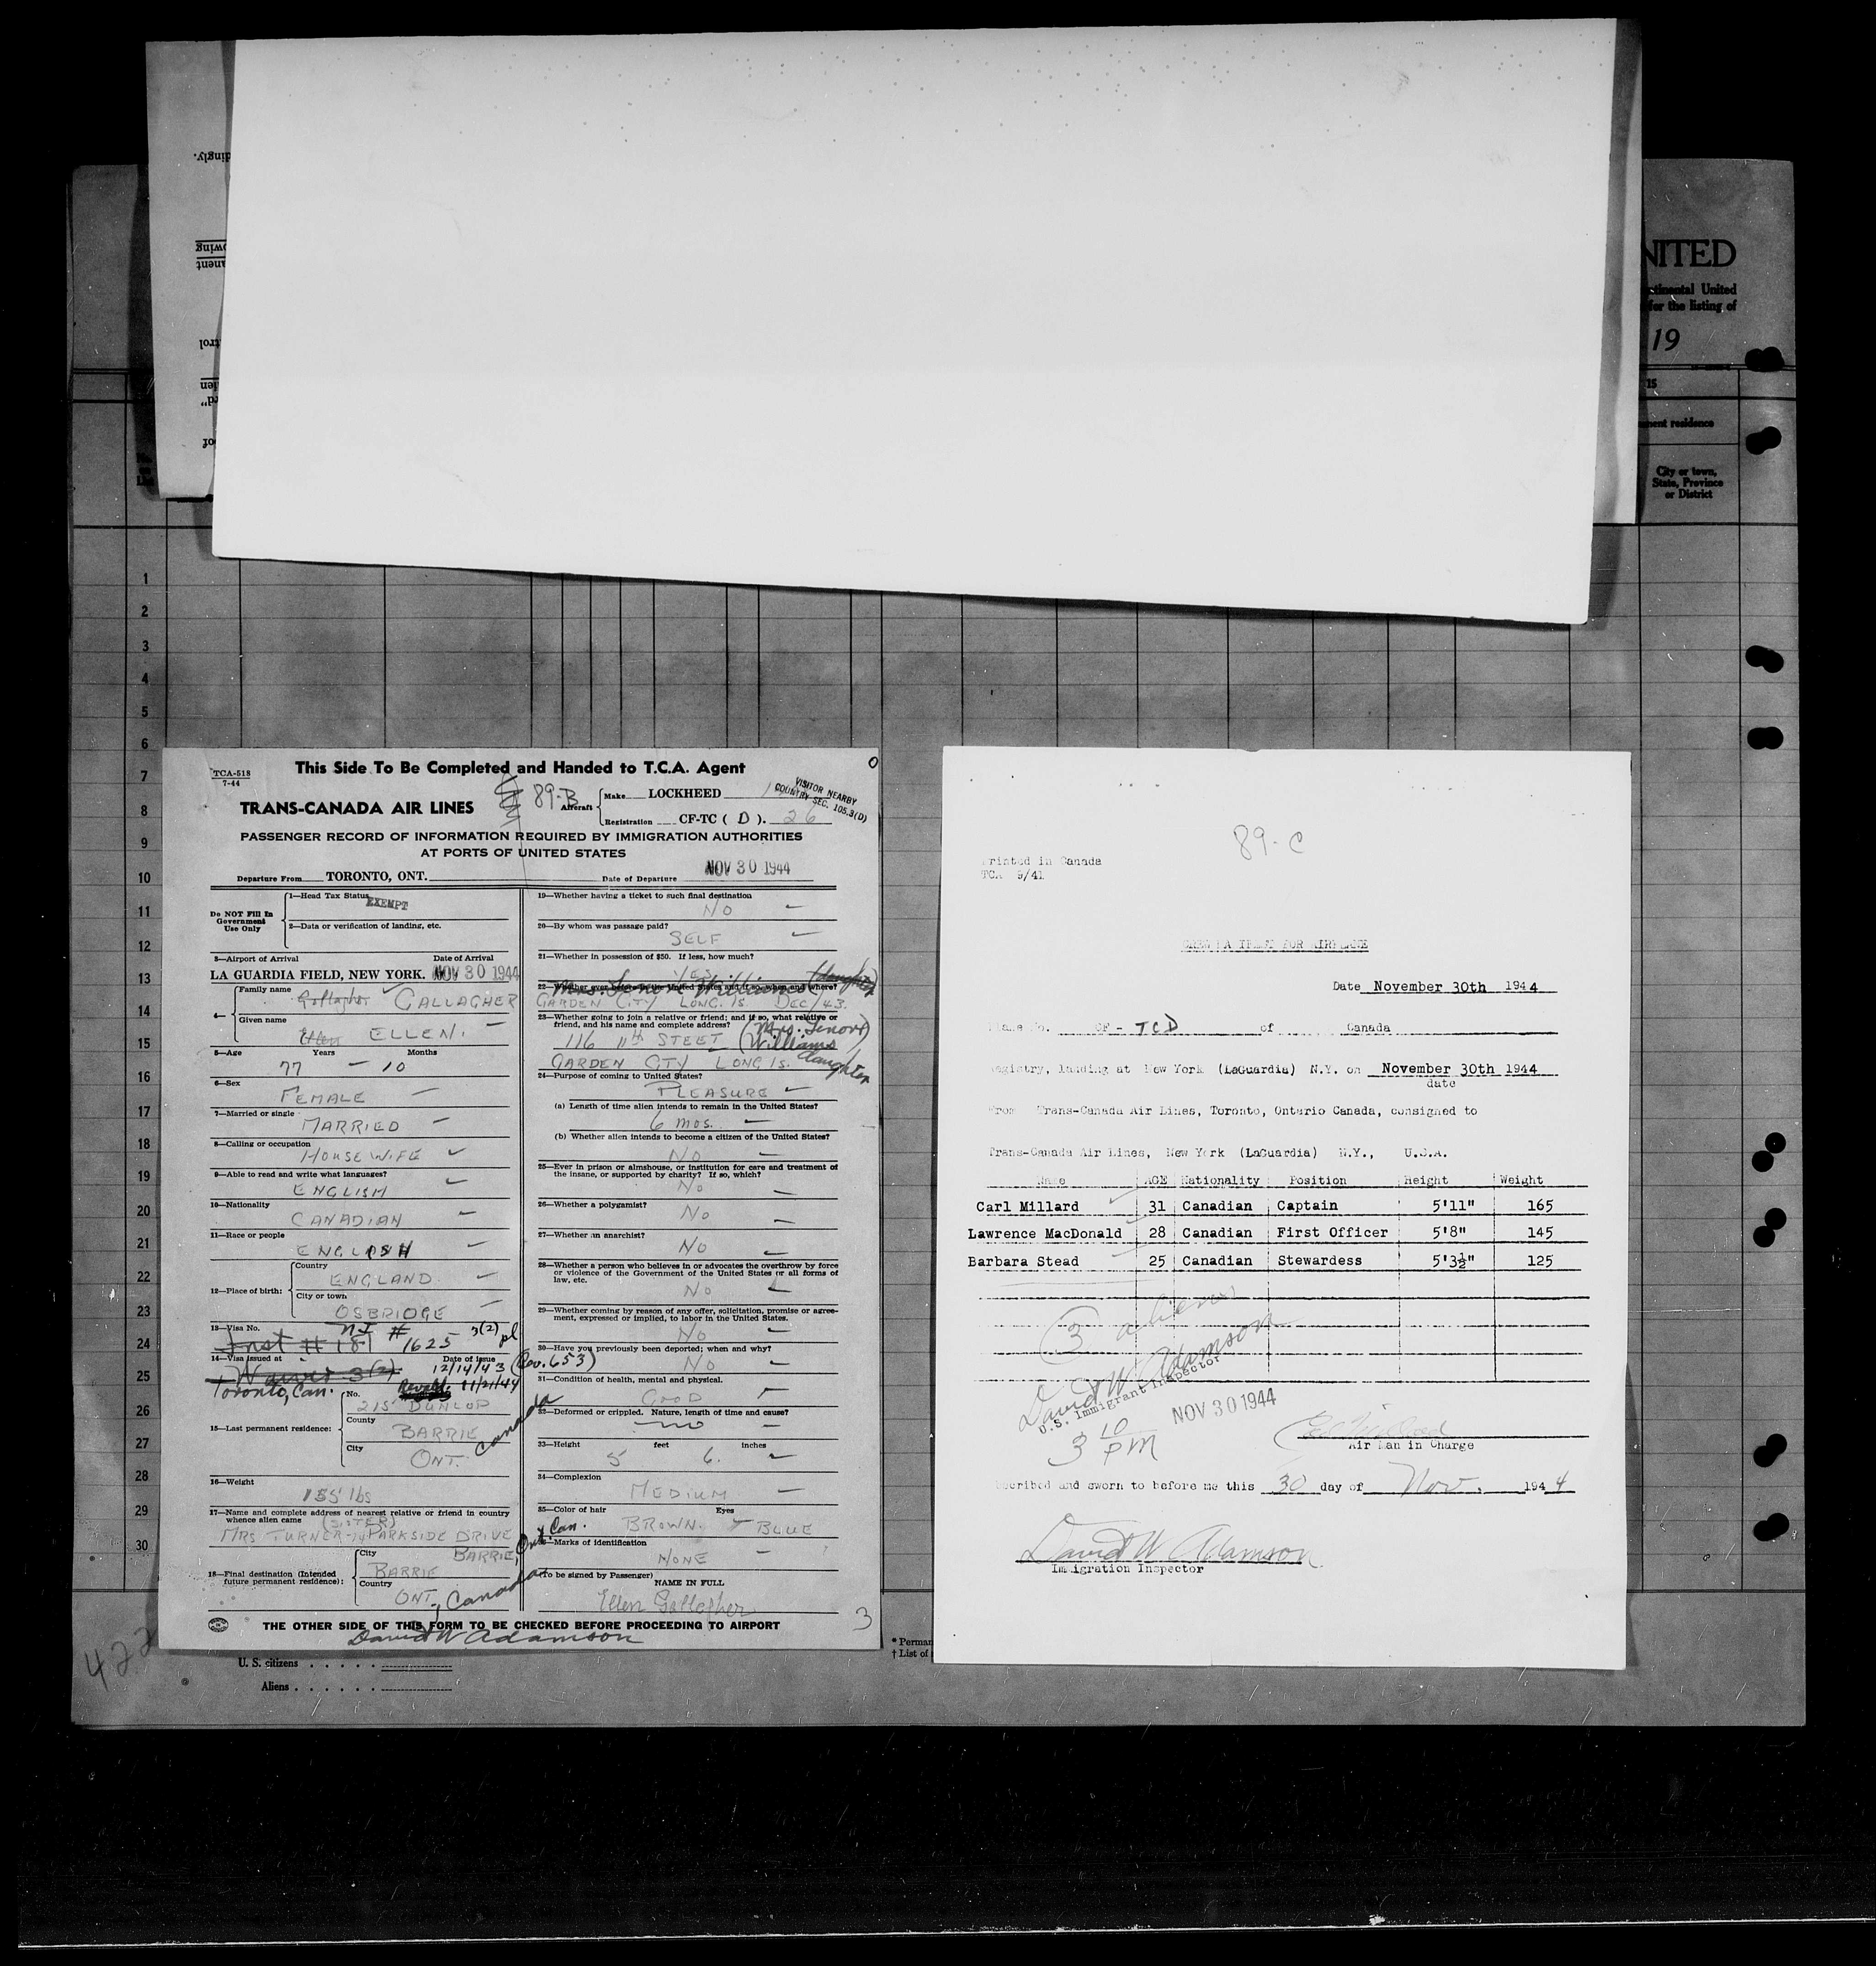 NITED
tinental United
for the listing of
19
nent residence
City or town,
State, Province
or District
1
2
3
4
5
6
7
8
9
10
11
12
13
14
15
16
17
18
19
20
21
22
23
24
25
26
27
28
29
30
TCA-518
7-44
This Side To Be Completed and Handed to T.C.A. Agent
0
TRANS-CANADA AIR LINES
89-B
Aircraft
Make LOCKHEED
VISITOR NEARBY
COUNTRY SEC. 105.3(D)
Registration CF-TC ( D ). 26
PASSENGER RECORD OF INFORMATION REQUIRED BY IMMIGRATION AUTHORITIES
AT PORTS OF UNITED STATES
Departure From TORONTO, ONT. Date of Departure NOV 30 1944
Do NOT Fill In
Government
Use Only
1—Head Tax Status EXEMPT
2—Data or verification of landing, etc.
3—Airport of Arrival Date of Arrival
LA GUARDIA FIELD, NEW YORK. NOV 30 1944
4—
Family name
Gallagher GALLAGHER
Given name
Ellen ELLEN.
5—Age Years Months
77 - 10
6—Sex
FEMALE
7—Married or single
MARRIED
8—Calling or occupation
HOUSE WIFE
9—Able to read and write what languages?
ENGLISH
10—Nationality
CANADIAN
11—Race or people
ENGLISH
12—Place of birth:
Country
ENGLAND
City or town
OSBRIDGE
13—Visa No.
NI # 1625 3(2) pl
# 181
14—Visa issued at Date of issue
Waiver 3(2) 12/14/43 (Rev. 653)
Toronto, Can. 11/21/44
15—Last permanent residence:
No.
215 DUNLOP
County
BARRIE
City
ONT. Canada
16—Weight
155 lbs
17—Name and complete address of nearest relative or friend in country
whence alien came (SISTER)
MRS TURNER-74 PARKSIDE DRIVE
BARRIE, Ont. Can.
18—Final destination (Intended
future permanent residence):
City
BARRIE
Country
ONT., Canada
19—Whether having a ticket to such final destination
NO
20—By whom was passage paid?
SELF
21—Whether in possession of $50. If less, how much?
YES
22—Whether ever before in the United States and if so, when and where?
Mrs. Lenore Williams (daughter)
GARDEN CITY LONG. IS. DEC/43.
23—Whether going to join a relative or friend; and if so, what relative or
friend, and his name and complete address?
(Mrs. Lenore
116 11th STEET Williams)
GARDEN CITY LONG IS. daughter
24—Purpose of coming to United States?
PLEASURE
(a) Length of time alien intends to remain in the United States?
6 mos.
(b) Whether alien intends to become a citizen of the United States?
NO
25—Ever in prison or almshouse, or institution for care and treatment of
the insane, or supported by charity? If so, which?
No
26—Whether a polygamist?
No
27—Whether an anarchist?
No
28—Whether a person who believes in or advocates the overthrow by force
or violence of the Government of the United States or all forms of
law, etc.
No
29—Whether coming by reason of any offer, solicitation, promise or agree-
ment, expressed or implied, to labor in the United States.
No
30—Have you previously been deported; when and why?
No
31—Condition of health, mental and physical.
GOOD
32—Deformed or crippled. Nature, length of time and cause?
no
33—Height feet inches
5 6.
34—Complexion
MEDIUM
35—Color of hair Eyes
BROWN. BLUE
36—Marks of identification
NONE
(To be signed by Passenger)
NAME IN FULL
Ellen Gallagher
3
THE OTHER SIDE OF THIS FORM TO BE CHECKED BEFORE PROCEEDING TO AIRPORT
David W. Adamson
422
U. S. citizens
Aliens
* Perman
† List of
89-C
Printed in Canada
TCA 9/41
CREW MANIFEST FOR AIRPLANE
Date November 30th 1944
Plane No. CF - TCD of Canada
Registry, landing at New York (LaGuardia) N.Y. on November 30th 1944
date
From Trans-Canada Air Lines, Toronto, Ontario Canada, consigned to
Trans-Canada Air Lines, New York (LaGuardia) N.Y., U.S.A.
Name AGE Nationality Position Height Weight
Carl Millard 31 Canadian Captain 5'11" 165
Lawrence MacDonald 28 Canadian First Officer 5'8" 145
Barbara Stead 25 Canadian Stewardess 5'3½" 125
3 aliens
David W Adamson
U.S. Immigrant Inspector
NOV 30 1944
3 10 PM
Air Man in Charge
scribed and sworn to before me this 30 day of Nov. 1944
David W Adamson
Immigration Inspector